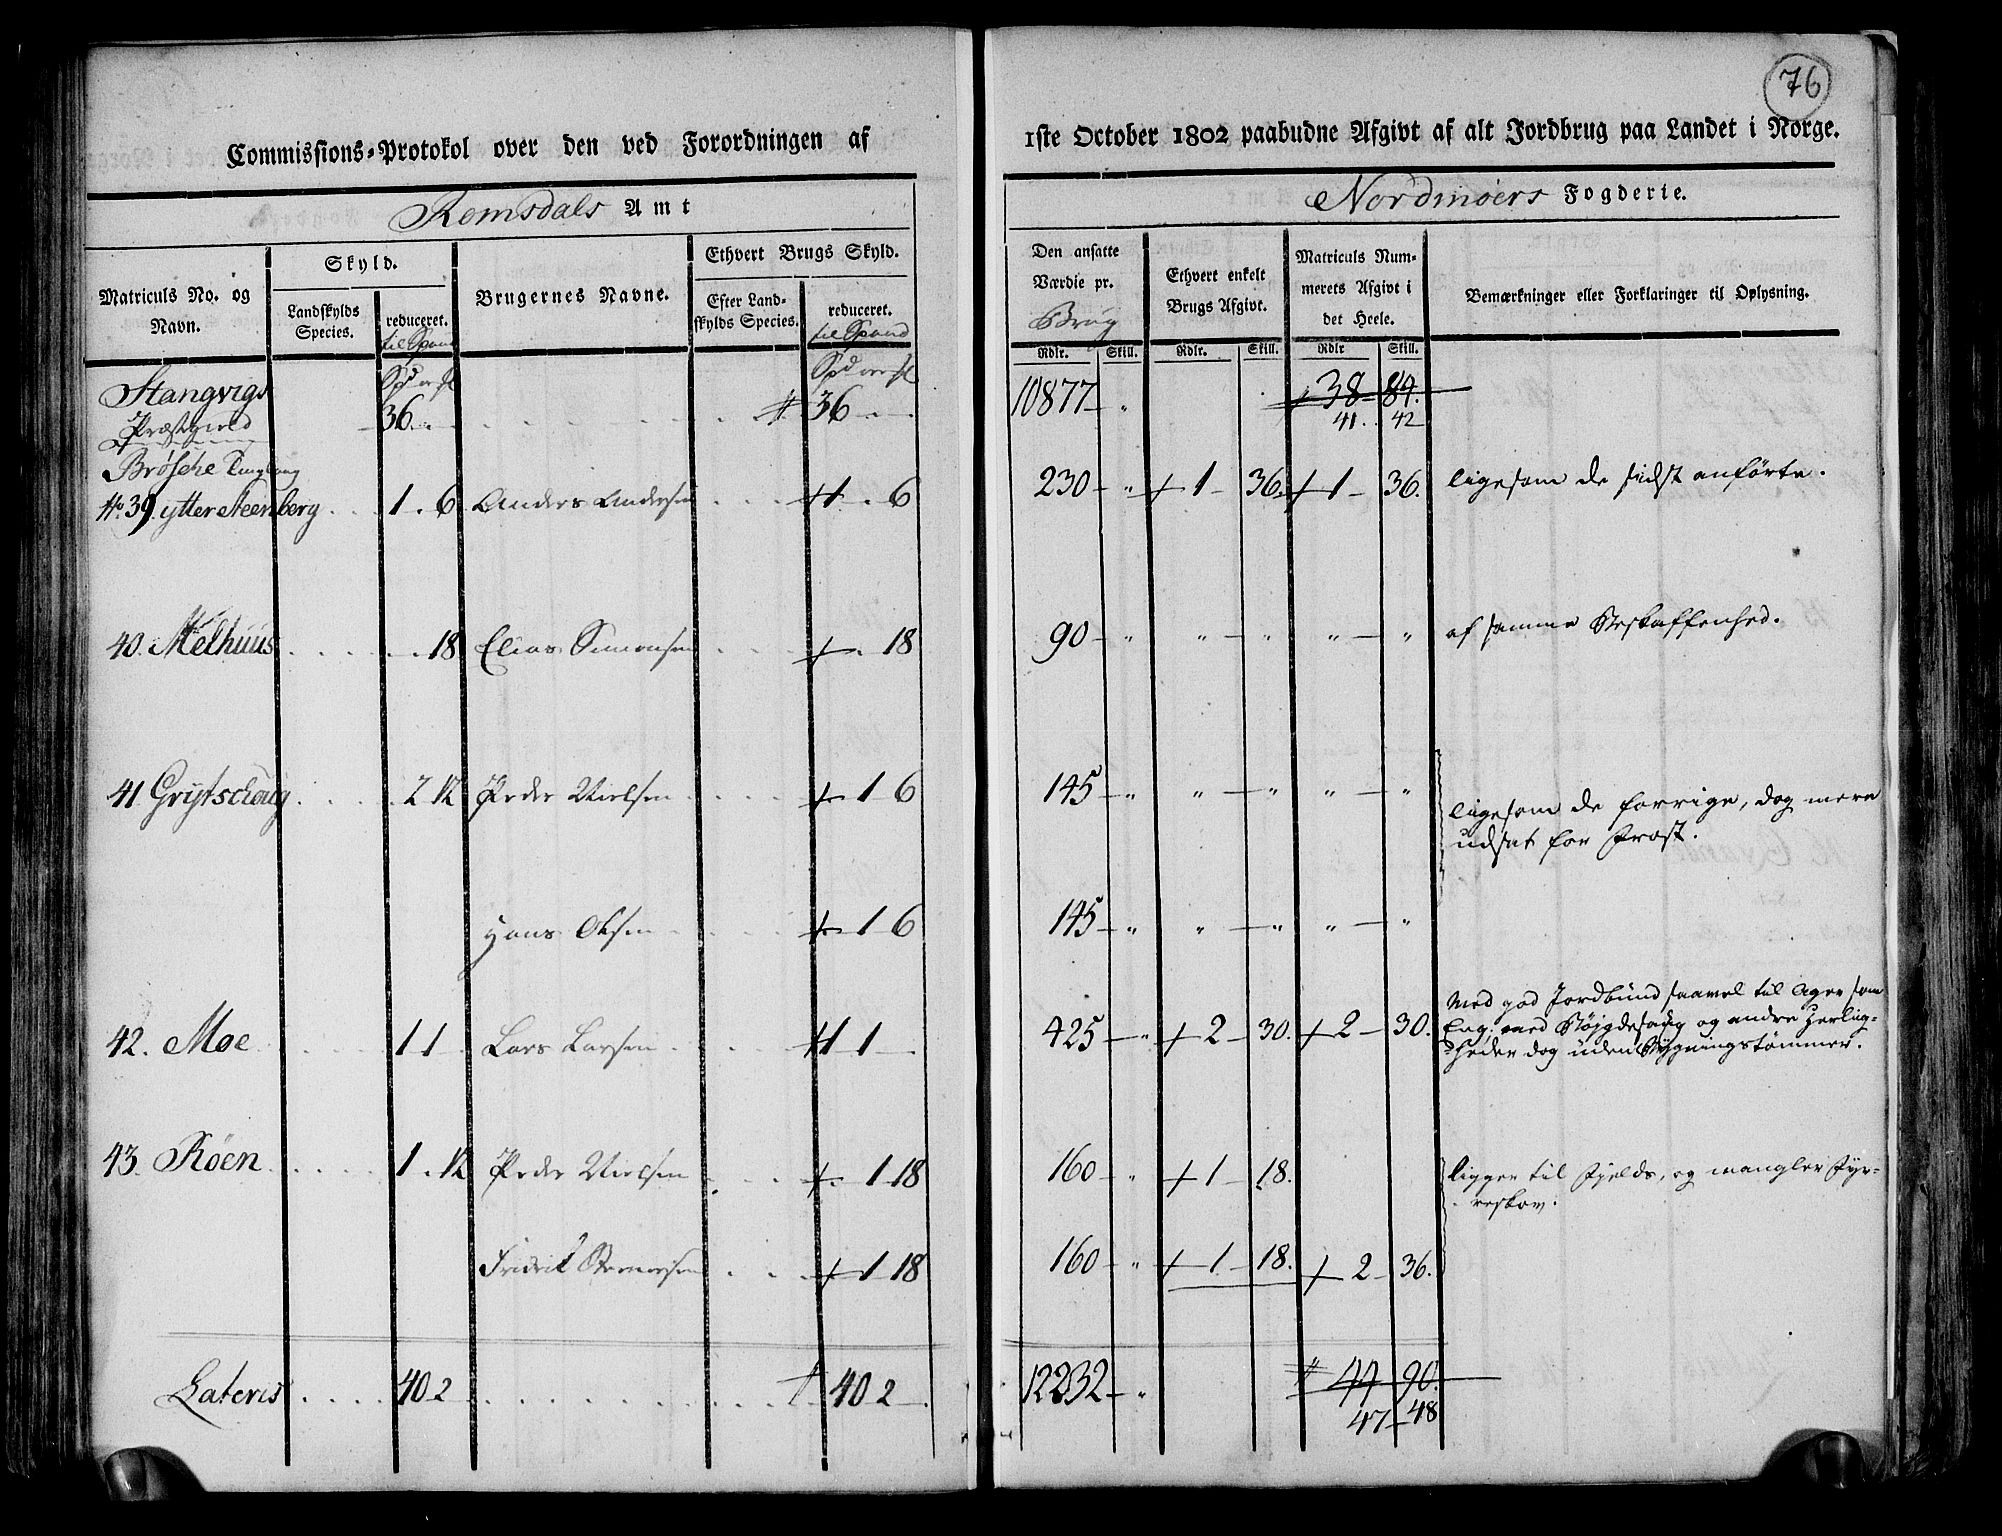 76
Commissions-Protokol over den ved Forordningen af 1ste October 1802 paabudne Afgivt af alt Jordbrug paa Landet i Norge.
Romsdals Amt
Nordmöers Fogderie.
Matriculs No. og Navn.
Skyld.
Landskylds Species.
reduceret.
til Spand
Brugernes Navne.
Ethvert Brugs Skyld.
Efter Landskylds Species.
reduceret.
til Spand
Den ansatte Værdie pr. Brug
Ethvert enkelt Brugs Afgivt.
Matriculs Nummerets Afgivt i det Heele.
Bemærkninger eller Forklaringer til Oplysning.
Rdlr. Skill. Rdlr. Skill. Rdlr Skill.
Stangvigs Præstegield 36 . . . . 36 10877 " 38 84.
41. 42
Brøske
No. 39 ytter Steenberg . . 1 . 6 Anders Andersen . . . 1 . 6 230 " 1 36. 1 36. ligesom de sidst anførte.
40. Melhuus . . . . 18 Elias Simonsen . . . 18 90 " " " " " af samme Beskaffenhed.
41 Grytschoug . . . . 2 12 Peder Nielsen . . . 1 6 145 " " " " " ligesom de forrige, dog mere
udsat for Frost.
Hans Olsen . . . 1 6 145 " " " " "
42. Moe . . . 1 1 Lars Larsen . . . 1 1 425 " 2 30. 2 30. Med god Jordbund saavel til Ager som
Eng; med Bøjgdesaug og andre Herlig-
heder dog uden Bygningstømmer.
43. Røen . . . 1 . 12 Peder Nielsen . . . 1 18 160 " 1 18. ligger til Fjelds, og mangler Fyr-
reskov.
Fridrik . . . 1 18 160 " 1 18. 2 36.
Lateris . . . 40 2 . . . 40 2 12232 " 44 90.
47 48